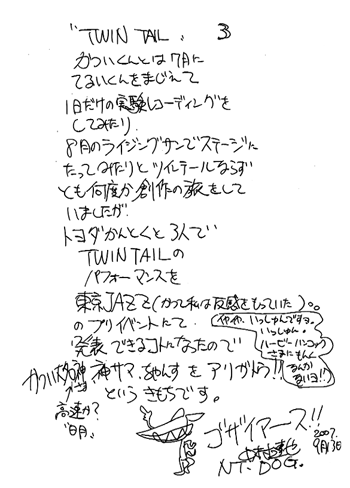 "TWIN TAIL" 3
かついくんとは7月に
てるいくんをまじえて
1日だけの実験レコーディングを
してみたり
8月のライジングサンでステージに
たってみたりとツインテールならず
とも何度か創作の旅をして
いましたが
トヨダかんとくと3人で
TWIN TAILの
パフォーマンスを
東京JAZZ(かつて私は反感をもっていた)。
のプリイベントにて
発表できるコトになったので
神サマ、ちゃんすをアリガトウ!!
というきもちです。
いやいや、いっしゅんですョ。
いっしゅん。
ハービーハンコック
さまにもんく
なんか
ないヨ!!)
高速か?
ゴザイアース!!
2007.
9月13日
NT. DOG.